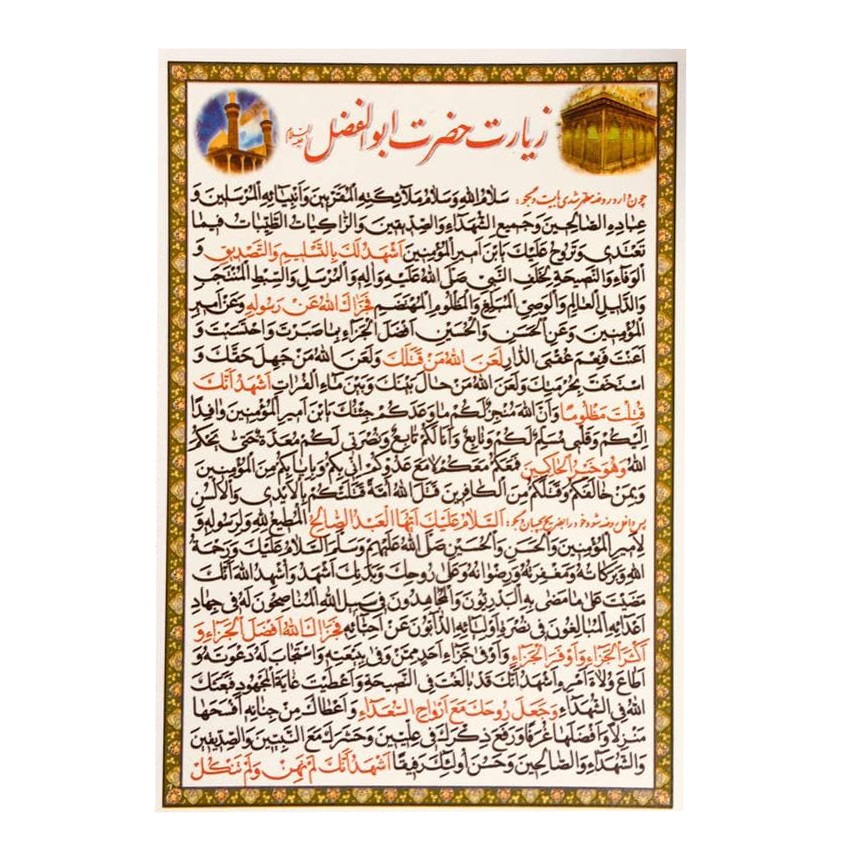 زیارت حضرت ابوالفضل علیه‌السلام
سَلَامُ اللهِ وَسَلَامُ مَلَآئِكَتِهِ الْمُقَرَّبِينَ وَأَنْبِيَآئِهِ الْمُرْسَلِينَ وَ
عِبَادِهِ الصَّالِحِينَ وَجَمِيعِ الشُّهَدَآءِ وَالصِّدِّيقِينَ وَالزَّاكِيَاتُ الطَّيِّبَاتُ فِيمَا
تَغْتَدِي وَتَرُوحُ عَلَيْكَ يَابْنَ أَمِيرِ الْمُؤْمِنِينَ أَشْهَدُ لَكَ بِالتَّسْلِيمِ وَالتَّصْدِيقِ وَ
الْوَفَاءِ وَالنَّصِيحَةِ لِخَلَفِ النَّبِيِّ صَلَّى اللهُ عَلَيْهِ وَآلِهِ الْمُرْسَلِ وَالسِّبْطِ الْمُنْتَجَبِ
وَالدَّلِيلِ الْعَالِمِ وَالْوَصِيِّ الْمُبَلِّغِ وَالْمَظْلُومِ الْمُهْتَضَمِ فَجَزَاكَ اللهُ عَنْ رَسُولِهِ وَعَنْ أَمِيرِ
الْمُؤْمِنِينَ وَعَنِ الْحَسَنِ وَالْحُسَيْنِ أَفْضَلَ الْجَزَآءِ بِمَا صَبَرْتَ وَاحْتَسَبْتَ وَ
أَعَنْتَ فَنِعْمَ عُقْبَى الدَّارِ لَعَنَ اللهُ مَنْ قَتَلَكَ وَلَعَنَ اللهُ مَنْ جَهِلَ حَقَّكَ وَ
اسْتَخَفَّ بِحُرْمَتِكَ وَلَعَنَ اللهُ مَنْ حَالَ بَيْنَكَ وَبَيْنَ مَآءِ الْفُرَاتِ أَشْهَدُ أَنَّكَ
قُتِلْتَ مَظْلُومًا وَأَنَّ اللهَ مُنْجِزٌ لَكُمْ مَا وَعَدَكُمْ جِئْتُكَ يَابْنَ أَمِيرِ الْمُؤْمِنِينَ وَافِدًا
إِلَيْكُمْ وَقَلْبِي مُسَلِّمٌ لَكُمْ وَتَابِعٌ وَأَنَا لَكُمْ تَابِعٌ وَنُصْرَتِي لَكُمْ مُعَدَّةٌ حَتَّى يَحْكُمَ
اللهُ وَهُوَ خَيْرُ الْحَاكِمِينَ فَمَعَكُمْ مَعَكُمْ لَا مَعَ عَدُوِّكُمْ إِنِّي بِكُمْ وَبِإِيَابِكُمْ مِنَ الْمُؤْمِنِينَ
وَبِمَنْ خَالَفَكُمْ وَقَتَلَكُمْ مِنَ الْكَافِرِينَ قَتَلَ اللهُ أُمَّةً قَتَلَتْكُمْ بِالْأَيْدِي وَالْأَلْسُنِ
اَلسَّلَامُ عَلَيْكَ أَيُّهَا الْعَبْدُ الصَّالِحُ الْمُطِيعُ لِلهِ وَلِرَسُولِهِ وَ
لِأَمِيرِ الْمُؤْمِنِينَ وَالْحَسَنِ وَالْحُسَيْنِ صَلَّى اللهُ عَلَيْهِمْ وَسَلَّمَ السَّلَامُ عَلَيْكَ وَرَحْمَةُ
اللهِ وَبَرَكَاتُهُ وَمَغْفِرَتُهُ وَرِضْوَانُهُ وَعَلَى رُوحِكَ وَبَدَنِكَ أَشْهَدُ وَأُشْهِدُ اللهَ أَنَّكَ
مَضَيْتَ عَلَى مَا مَضَى بِهِ الْبَدْرِيُّونَ وَالْمُجَاهِدُونَ فِي سَبِيلِ اللهِ الْمُنَاصِحُونَ لَهُ فِي جِهَادِ
أَعْدَآئِهِ الْمُبَالِغُونَ فِي نُصْرَةِ أَوْلِيَآئِهِ الذَّآبُّونَ عَنْ أَحِبَّائِهِ فَجَزَاكَ اللهُ أَفْضَلَ الْجَزَآءِ وَ
أَكْثَرَ الْجَزَآءِ وَأَوْفَرَ الْجَزَآءِ وَأَوْفَى جَزَآءِ أَحَدٍ مِمَّنْ وَفَى بِبَيْعَتِهِ وَاسْتَجَابَ لَهُ دَعْوَتَهُ وَ
أَطَاعَ وُلَاةَ أَمْرِهِ أَشْهَدُ أَنَّكَ قَدْ بَالَغْتَ فِي النَّصِيحَةِ وَأَعْطَيْتَ غَايَةَ الْمَجْهُودِ فَبَعَثَكَ
اللهُ فِي الشُّهَدَآءِ وَجَعَلَ رُوحَكَ مَعَ أَرْوَاحِ السُّعَدَآءِ وَأَعْطَاكَ مِنْ جِنَانِهِ أَفْسَحَهَا
مَنْزِلًا وَأَفْضَلَهَا غُرَفًا وَرَفَعَ ذِكْرَكَ فِي عِلِّيِّينَ وَحَشَرَكَ مَعَ النَّبِيِّينَ وَالصِّدِّيقِينَ
وَالشُّهَدَآءِ وَالصَّالِحِينَ وَحَسُنَ أُولَئِكَ رَفِيقًا أَشْهَدُ أَنَّكَ لَمْ تَهِنْ وَلَمْ تَنْكُلْ